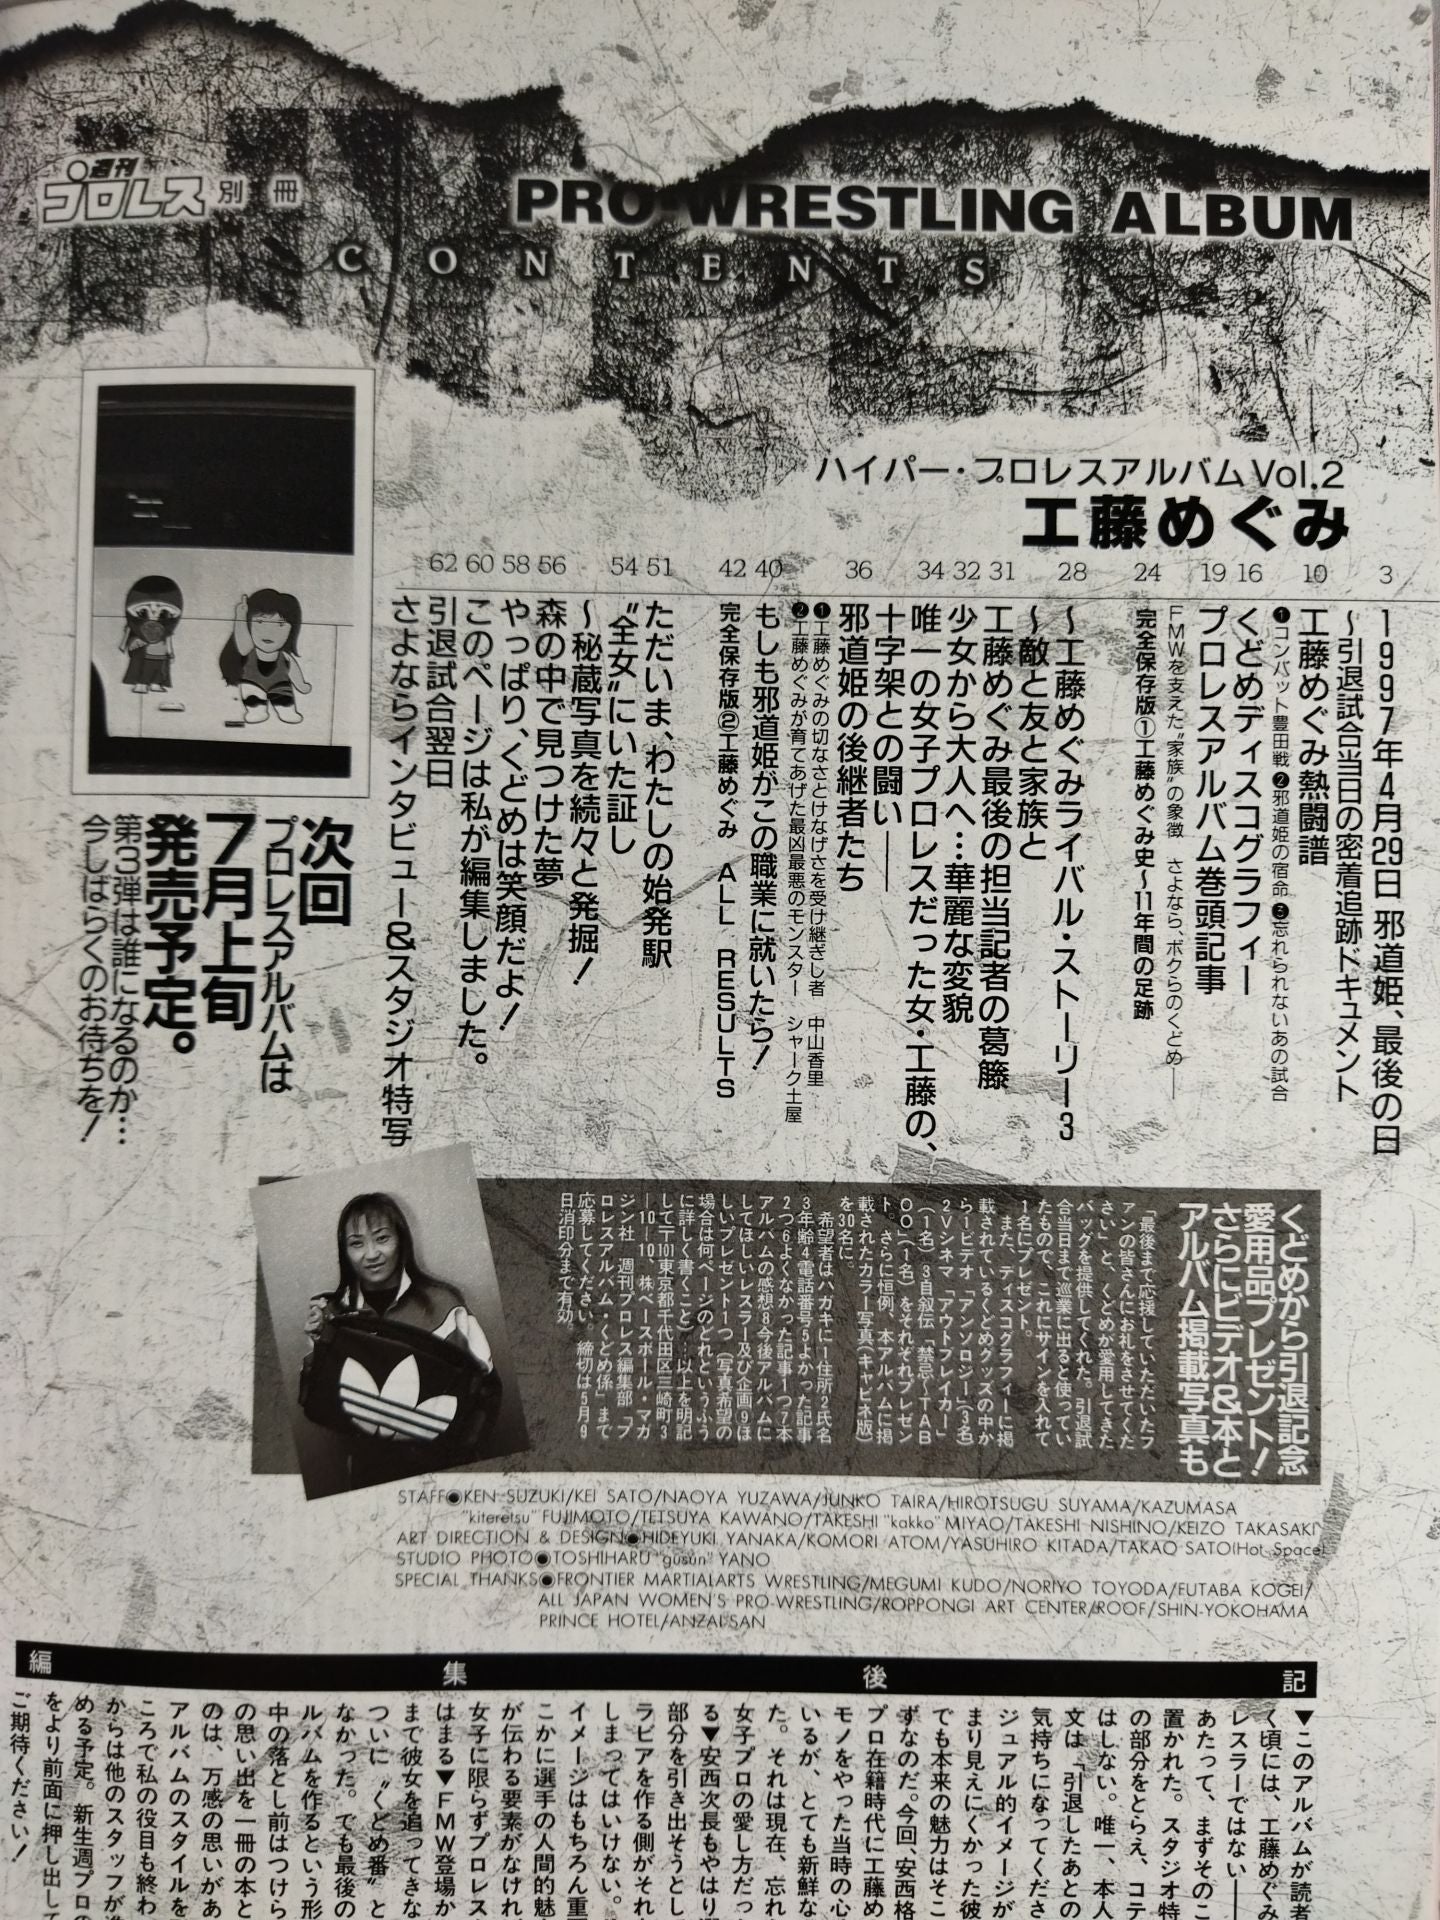 週刊プロレス別冊
PRO-WRESTLING ALBUM
CONTENTS
ハイパー・プロレスアルバムVol.2
工藤めぐみ
3 1997年4月29日 邪道姫、最後の日
〜引退試合当日の密着追跡ドキュメント
10 工藤めぐみ熱闘譜
❶コンバット豊田戦 ❷邪道姫の宿命 ❸忘れられないあの試合
16 くどめディスコグラフィー
19 プロレスアルバム巻頭記事
FMWを支えた“家族”の象徴 さよなら、ボクらのくどめ――
24 完全保存版①工藤めぐみ史〜11年間の足跡
28 〜工藤めぐみライバル・ストーリー3
〜敵と友と家族と
31 工藤めぐみ最後の担当記者の葛藤
32 少女から大人へ…華麗な変貌
34 唯一の女子プロレスだった女・工藤の、
十字架との闘い――
36 邪道姫の後継者たち
❶工藤めぐみの切なさとけなげさを受け継ぎし者 中山香里
❷工藤めぐみが育てあげた最凶最悪のモンスター シャーク土屋
40 もしも邪道姫がこの職業に就いたら!
42 完全保存版②工藤めぐみ ALL RESULTS
51 ただいま、わたしの始発駅
54 “全女”にいた証し
〜秘蔵写真を続々と発掘!
56 森の中で見つけた夢
58 やっぱり、くどめは笑顔だよ!
60 このページは私が編集しました。
62 引退試合翌日
さよならインタビュー&スタジオ特写
次回
プロレスアルバムは
7月上旬
発売予定。
第3弾は誰になるのか…
今しばらくのお待ちを!
くどめから引退記念
愛用品プレゼント!
さらにビデオ&本と
アルバム掲載写真も
「最後まで応援していただいたフ
ァンの皆さんにお礼をさせてくだ
さい」と、くどめが愛用してきた
バッグを提供してくれた。引退試
合当日まで巡業に出ると使ってい
たもので、これにサインを入れて
1名にプレゼント。
また、ディスコグラフィーに掲
載されているくどめグッズの中か
ら1ビデオ「アンソロジー」(3名)
2Vシネマ「アウトブレイカー」
(1名)3自叙伝「禁忌〜TAB
OO」(1名)をそれぞれプレゼン
ト。さらに恒例、本アルバムに掲
載されたカラー写真(キャビネ版)
を30名に。
希望者はハガキに1住所2氏名
3年齢4電話番号5よかった記事
2つ6よくなかった記事1つ7本
アルバムの感想8今後アルバムに
してほしいレスラー及び企画⑨ほ
しいプレゼント1つ(写真希望の
場合は何ページのどれというふう
に詳しく書くこと)…以上を明記
して〒101東京都千代田区三崎町3
―10―10、㈱ベースボール・マガ
ジン社 週刊プロレス編集部「プ
ロレスアルバム・くどめ係」まで
応募してください。締切は5月9
日消印分まで有効。
STAFF◉KEN SUZUKI/KEI SATO/NAOYA YUZAWA/JUNKO TAIRA/HIROTSUGU SUYAMA/KAZUMASA
"kiteretsu" FUJIMOTO/TETSUYA KAWANO/TAKESHI "kakko" MIYAO/TAKESHI NISHINO/KEIZO TAKASAKI
ART DIRECTION & DESIGN◉HIDEYUKI YANAKA/KOMORI ATOM/YASUHIRO KITADA/TAKAO SATO(Hot Space)
STUDIO PHOTO◉TOSHIHARU "gusun" YANO
SPECIAL THANKS◉FRONTIER MARTIALARTS WRESTLING/MEGUMI KUDO/NORIYO TOYODA/FUTABA KOGEI/
ALL JAPAN WOMEN'S PRO-WRESTLING/ROPPONGI ART CENTER/ROOF/SHIN-YOKOHAMA
PRINCE HOTEL/ANZAI.SAN
編集後記
▼このアルバムが読者
く頃には、工藤めぐみ
レスラーではない――
あたって、まずそのこ
置かれた。スタジオ特
の部分をとらえ、コテ
はしない。唯一、本人
文は「引退したあとの
気持ちになってくださ
ジュアル的イメージが
まり見えにくかった彼
でも本来の魅力はそこ
ずなのだ。今回、安西格
プロ在籍時代に工藤め
モノをやった当時の心
いるが、とても新鮮な
た。それは現在、忘れ
女子プロの愛し方だっ
る▼安西次長もやはり
部分を引き出そうとし
ラビアを作る側がそれ
しまってはいけない。
イメージはもちろん重
こかに選手の人間的魅
が伝わる要素がなけれ
女子に限らずプロレス
はまる▼FMW登場か
まで彼女を追ってきな
ついに“くどめ番”と
なかった。でも最後の
ルバムを作るという形
中の落とし前はつけら
の思い出を一冊の本と
のは、万感の思いがあ
アルバムのスタイルを
ころで私の役目も終わ
からは他のスタッフが
める予定。新生週プロの
をより前面に押し出して
ご期待ください!